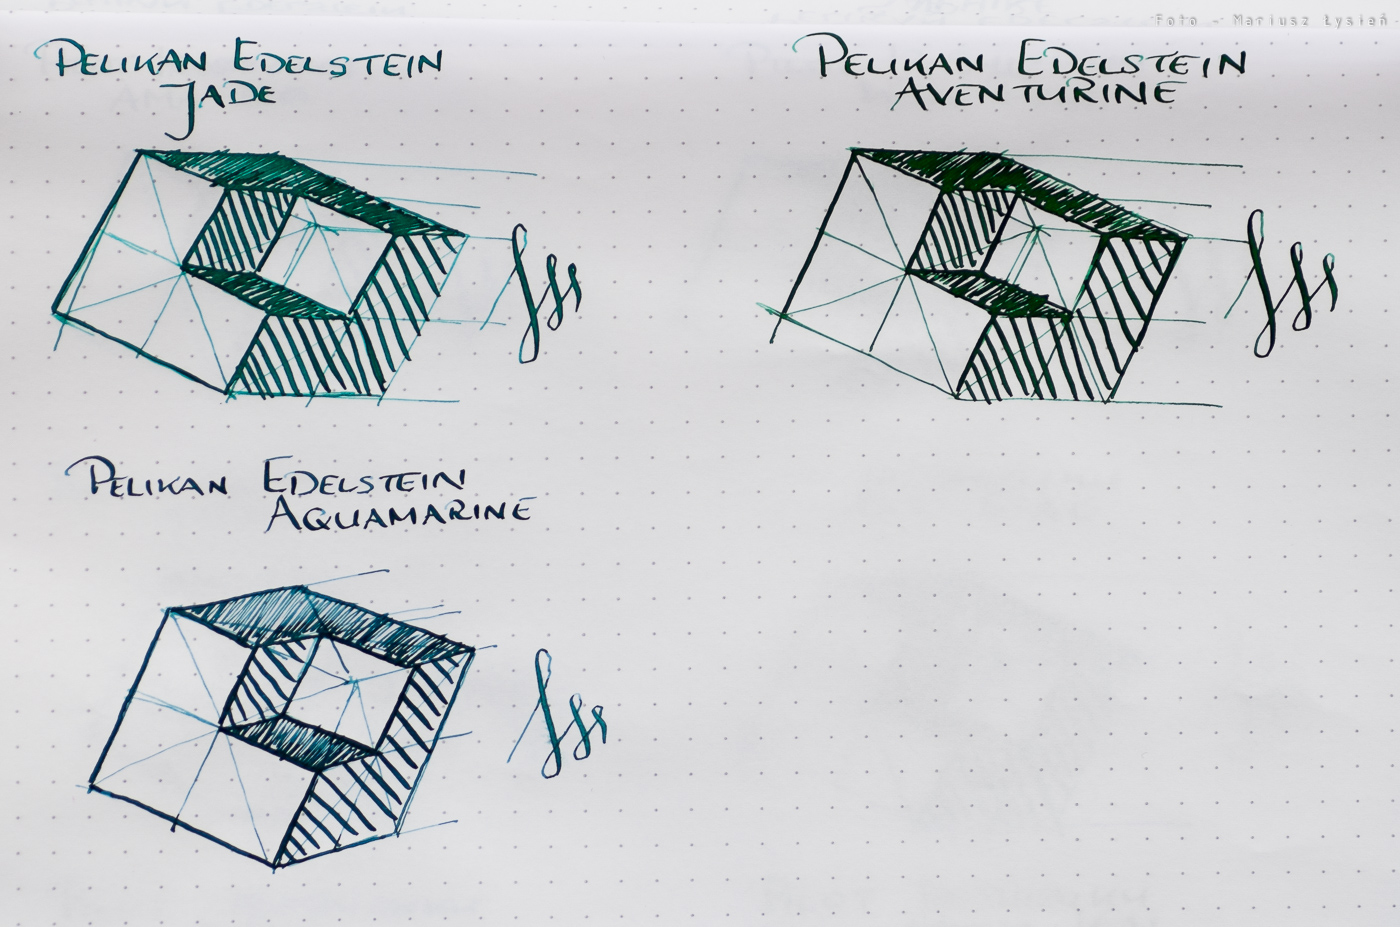 Foto - Mariusz Łysień
PELIKAN EDELSTEIN
JADE
PELIKAN EDELSTEIN
AVENTURINE
PELIKAN EDELSTEIN
AQUAMARINE